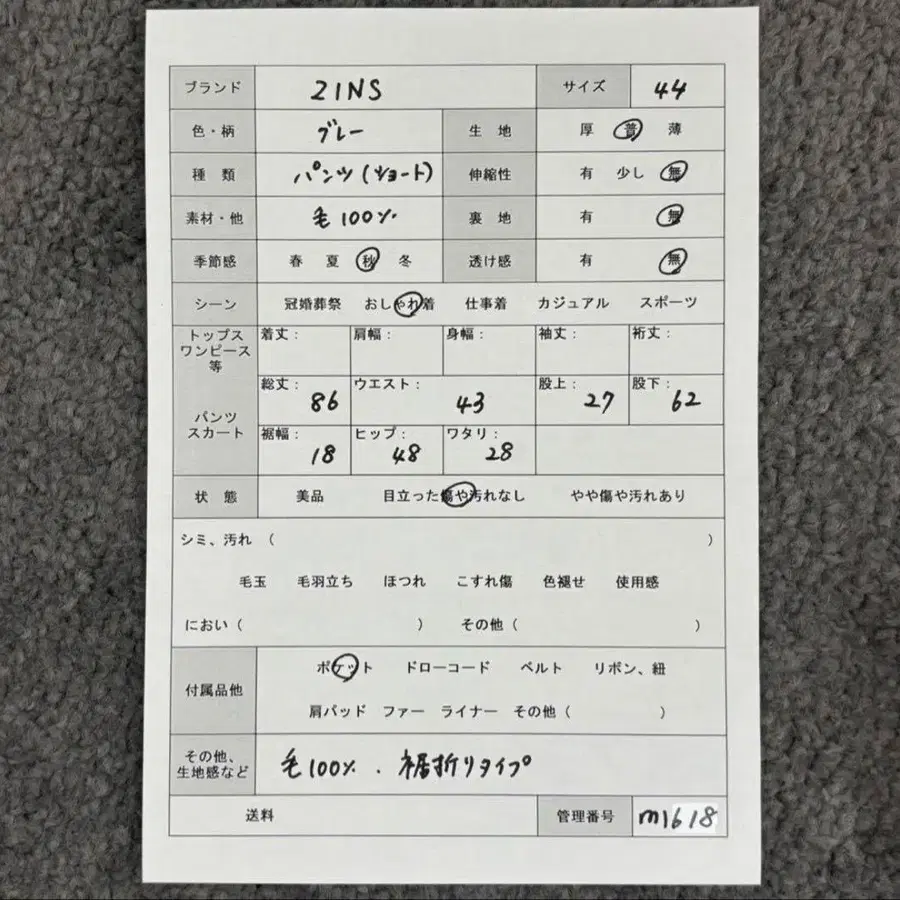 ブランド 21NS サイズ 44
色・柄 グレー 生 地 厚 普 薄
種 類 パンツ(ショート) 伸縮性 有 少し 無
素材・他 毛100% 裏 地 有 無
季節感 春 夏 秋 冬 透け感 有 無
シーン 冠婚葬祭 おしゃれ着 仕事着 カジュアル スポーツ
トップス
ワンピース
等
着丈: 肩幅: 身幅: 袖丈: 裄丈:
パンツ
スカート
総丈: 86 ウエスト: 43 股上: 27 股下: 62
裾幅: 18 ヒップ: 48 ワタリ: 28
状 態 美品 目立った傷や汚れなし やや傷や汚れあり
シミ、汚れ ( )
毛玉 毛羽立ち ほつれ こすれ傷 色褪せ 使用感
におい( ) その他( )
付属品他 ポケット ドローコード ベルト リボン、紐
肩パッド ファー ライナー その他( )
その他、
生地感など
毛100%. 裾折りタイプ
送料 管理番号 m1618